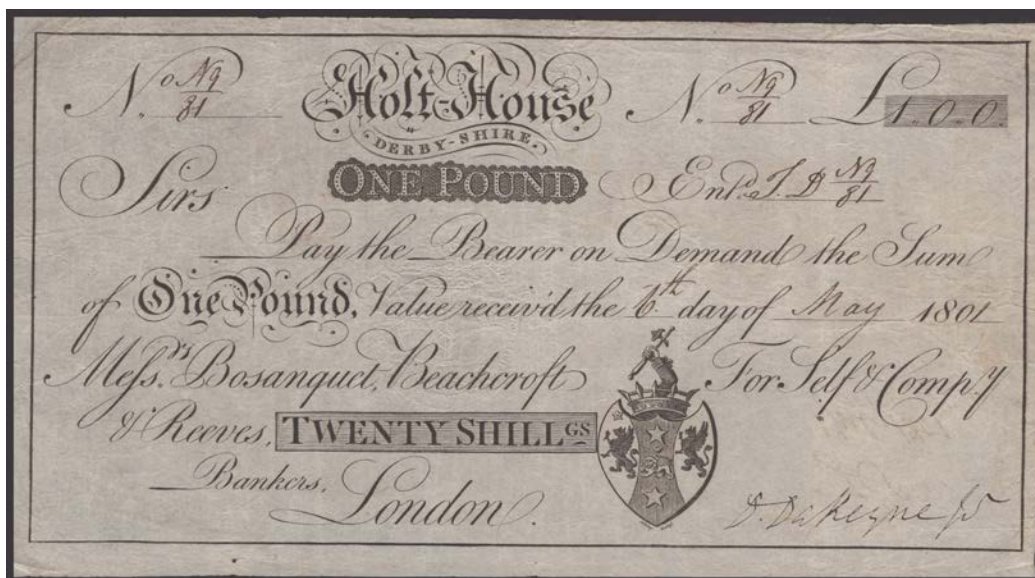 No. N9/81 Holt-House No. N9/81 £1.0.0.
DERBY-SHIRE.
ONE POUND Entd. J. D N9/81
Sirs
Pay the Bearer on Demand the Sum
of One Pound, Value receiv'd the 6th day of May 1801
Messrs. Bosanquet, Beachcroft For Self & Comp.y
& Reeves, TWENTY SHILLGS
Bankers,
London.
D. Dakeyne Jr